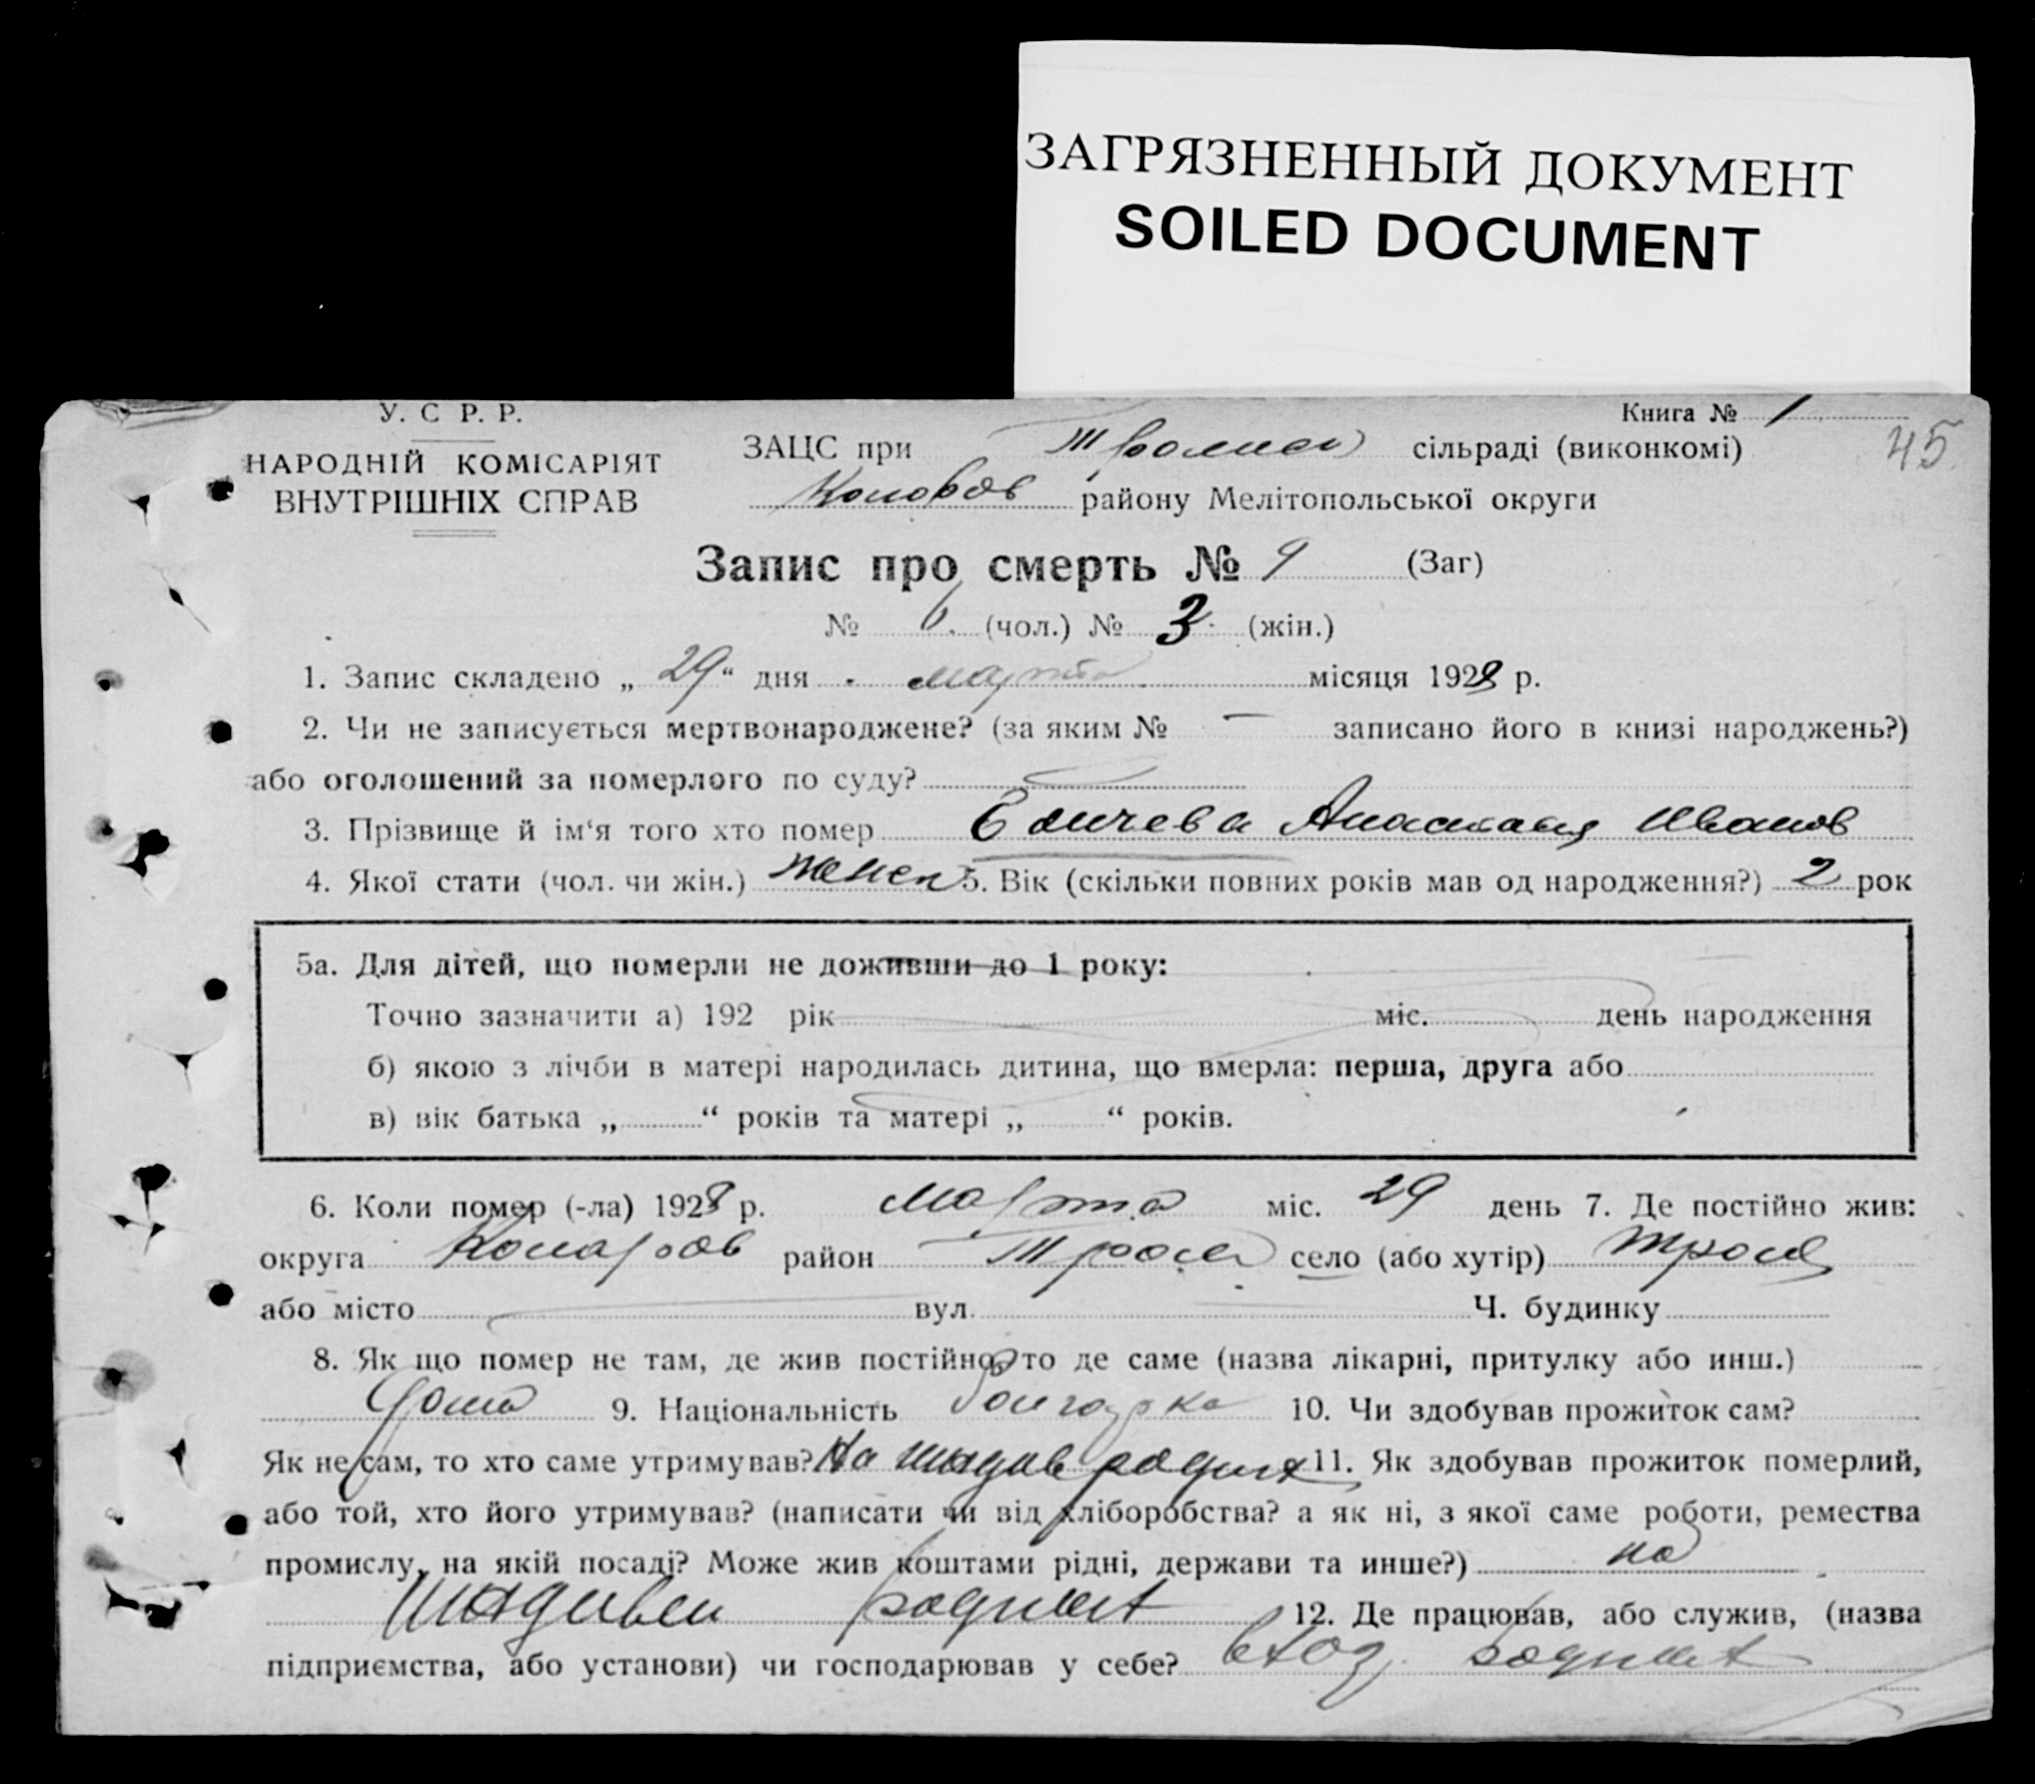 ЗАГРЯЗНЕННЫЙ ДОКУМЕНТ
SOILED DOCUMENT
У. С Р. Р.
НАРОДНІЙ КОМІСАРІЯТ
ВНУТРІШНІХ СПРАВ
Книга № 1
45
ЗАЦС при сільраді (виконкомі)
району Мелітопольської округи
Запис про смерть № 9 (Заг)
№ (чол.) № 3 (жін.)
1. Запис складено „ 29 “ дня марта місяця 1928 р.
2. Чи не записується мертвонароджене? (за яким № — записано його в книзі народжень?)
або оголошений за померлого по суду?
3. Прізвище й ім‘я того хто помер Анастасия Иванов
4. Якої стати (чол. чи жін.) женск 5. Вік (скільки повних років мав од народження?) 2 рок
5а. Для дітей, що померли не доживши до 1 року:
Точно зазначити а) 192 рік міс. день народження
б) якою з лічби в матері народилась дитина, що вмерла: перша, друга або
в) вік батька „ “ років та матері „ “ років.
6. Коли помер (-ла) 1928 р. марта міс. 29 день 7. Де постійно жив:
округа район село (або хутір)
або місто вул. Ч. будинку
8. Як що помер не там, де жив постійно, то де саме (назва лікарні, притулку або инш.)
дома 9. Національність болгарка 10. Чи здобував прожиток сам?
Як не сам, то хто саме утримував? На 11. Як здобував прожиток померлий,
або той, хто його утримував? (написати чи від хліборобства? а як ні, з якої саме роботи, ремества
промислу, на якій посаді? Може жив коштами рідні, держави та инше?) на
12. Де працював, або служив, (назва
підприємства, або установи) чи господарював у себе?